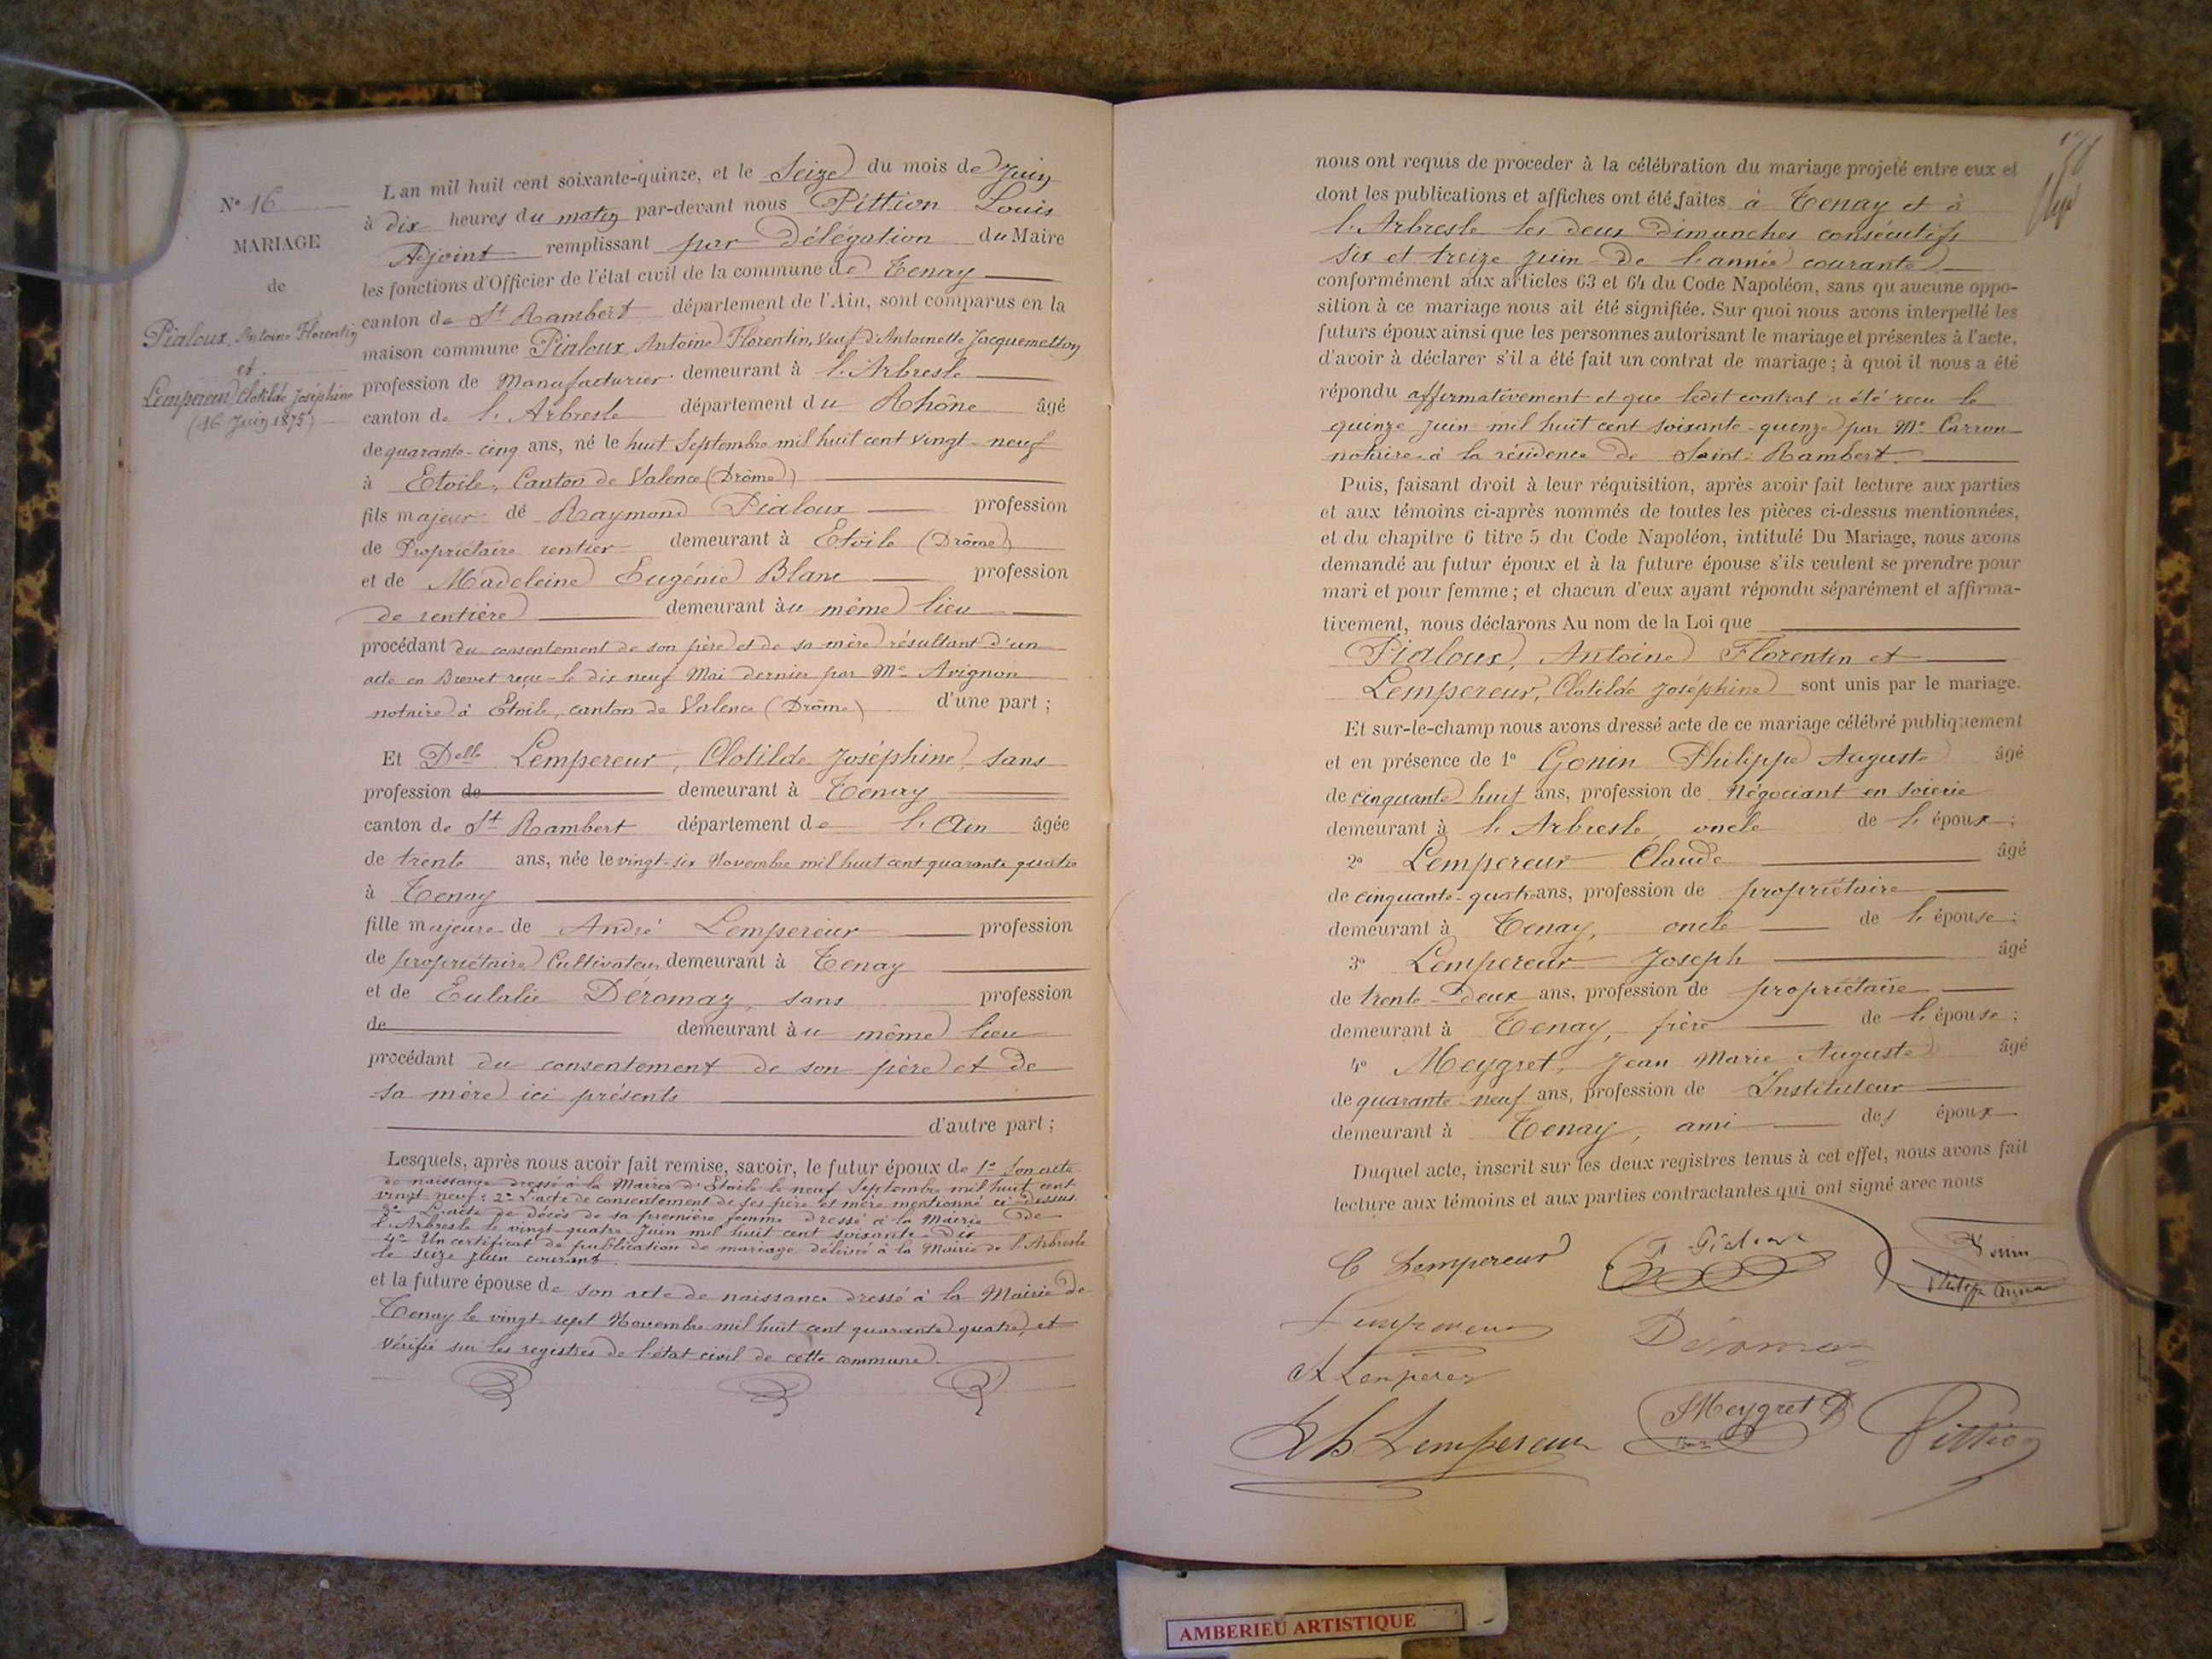 N° 16
MARIAGE
de
Pialoux, Antoine Florentin
et
Lempereur Clotilde Joséphine
(16 Juin 1875)
L'an mil huit cent soixante-quinze, et le Seize du mois de Juin
à dix heures du matin par-devant nous Pittion Louis
Adjoint remplissant par Délégation du Maire
les fonctions d'Officier de l'état civil de la commune de Tenay
canton de St Rambert département de l'Ain, sont comparus en la
maison commune Pialoux, Antoine Florentin, Veuf d'Antoinette Jacquemetton
profession de Manufacturier demeurant à l'Arbresle
canton de l'Arbresle département du Rhône âgé
de quarante-cinq ans, né le huit Septembre mil huit cent vingt-neuf
à Etoile, Canton de Valence (Drôme)
fils majeur de Raymond Pialoux profession
de Propriétaire rentier demeurant à Etoile (Drôme)
et de Madeleine Eugénie Blanc profession
de rentière demeurant au même lieu
procédant du consentement de son père et de sa mère résultant d'un
acte en Brevet reçu le dix neuf Mai dernier par Me Avignon
notaire à Etoile, canton de Valence (Drôme) d'une part ;
Et Delle Lempereur, Clotilde Joséphine, sans
profession de demeurant à Tenay
canton de St Rambert département de l'Ain âgée
de trente ans, née le vingt-six Novembre mil huit cent quarante quatre
à Tenay
fille majeure de André Lempereur profession
de propriétaire Cultivateur demeurant à Tenay
et de Eulalie Déromaz, sans profession
de demeurant au même lieu
procédant du consentement de son père et de
sa mère ici présents
d'autre part ;
Lesquels, après nous avoir fait remise, savoir, le futur époux de 1° Son acte
de naissance dressé à la Mairie d'Etoile le neuf Septembre mil huit cent
vingt neuf; 2° L'acte de consentement de ses père et mère mentionné ci-dessus
3° L'acte de décès de sa première femme dressé à la Mairie de
l'Arbresle le vingt-quatre Juin mil huit cent soixante-dix
4° Un certificat de publication de mariage délivré à la Mairie de l'Arbresle
le seize Juin courant.
et la future épouse de son acte de naissance dressé à la Mairie de
Tenay le vingt-sept Novembre mil huit cent quarante quatre, et
vérifié sur les registres de l'état civil de cette commune.
nous ont requis de proceder à la célébration du mariage projeté entre eux et
dont les publications et affiches ont été faites à Tenay et à
l'Arbresle les deux Dimanches consécutifs
six et treize Juin de l'année courante
conformément aux articles 63 et 64 du Code Napoléon, sans qu'aucune oppo-
sition à ce mariage nous ait été signifiée. Sur quoi nous avons interpellé les
futurs époux ainsi que les personnes autorisant le mariage et présentes à l'acte,
d'avoir à déclarer s'il a été fait un contrat de mariage ; à quoi il nous a été
répondu affirmativement et que ledit contrat a été reçu le
quinze Juin mil huit cent soixante-quinze par Me Carron
notaire à la résidence de Saint-Rambert.
Puis, faisant droit à leur réquisition, après avoir fait lecture aux parties
et aux témoins ci-après nommés de toutes les pièces ci-dessus mentionnées,
et du chapitre 6 titre 5 du Code Napoléon, intitulé Du Mariage, nous avons
demandé au futur époux et à la future épouse s'ils veulent se prendre pour
mari et pour femme ; et chacun d'eux ayant répondu séparément et affirma-
tivement, nous déclarons Au nom de la Loi que
Pialoux, Antoine Florentin et
Lempereur, Clotilde Joséphine sont unis par le mariage.
Et sur-le-champ nous avons dressé acte de ce mariage célébré publiquement
et en présence de 1° Gonin Philippe Auguste âgé
de cinquante huit ans, profession de Négociant en soierie
demeurant à l'Arbresle, oncle de l'époux ;
2° Lempereur Claude âgé
de cinquante-quatre ans, profession de propriétaire
demeurant à Tenay, oncle de l'épouse ;
3° Lempereur Joseph âgé
de trente-deux ans, profession de propriétaire
demeurant à Tenay, frère de l'épouse ;
4° Meygret, Jean Marie Auguste âgé
de quarante-neuf ans, profession de Instituteur
demeurant à Tenay, ami des époux
Duquel acte, inscrit sur les deux registres tenus à cet effet, nous avons fait
lecture aux témoins et aux parties contractantes qui ont signé avec nous
C Lempereur
Gonin
Lempereur
Déromaz
A Lempereur
Lempereur
Meygret
Pittion
AMBERIEU ARTISTIQUE